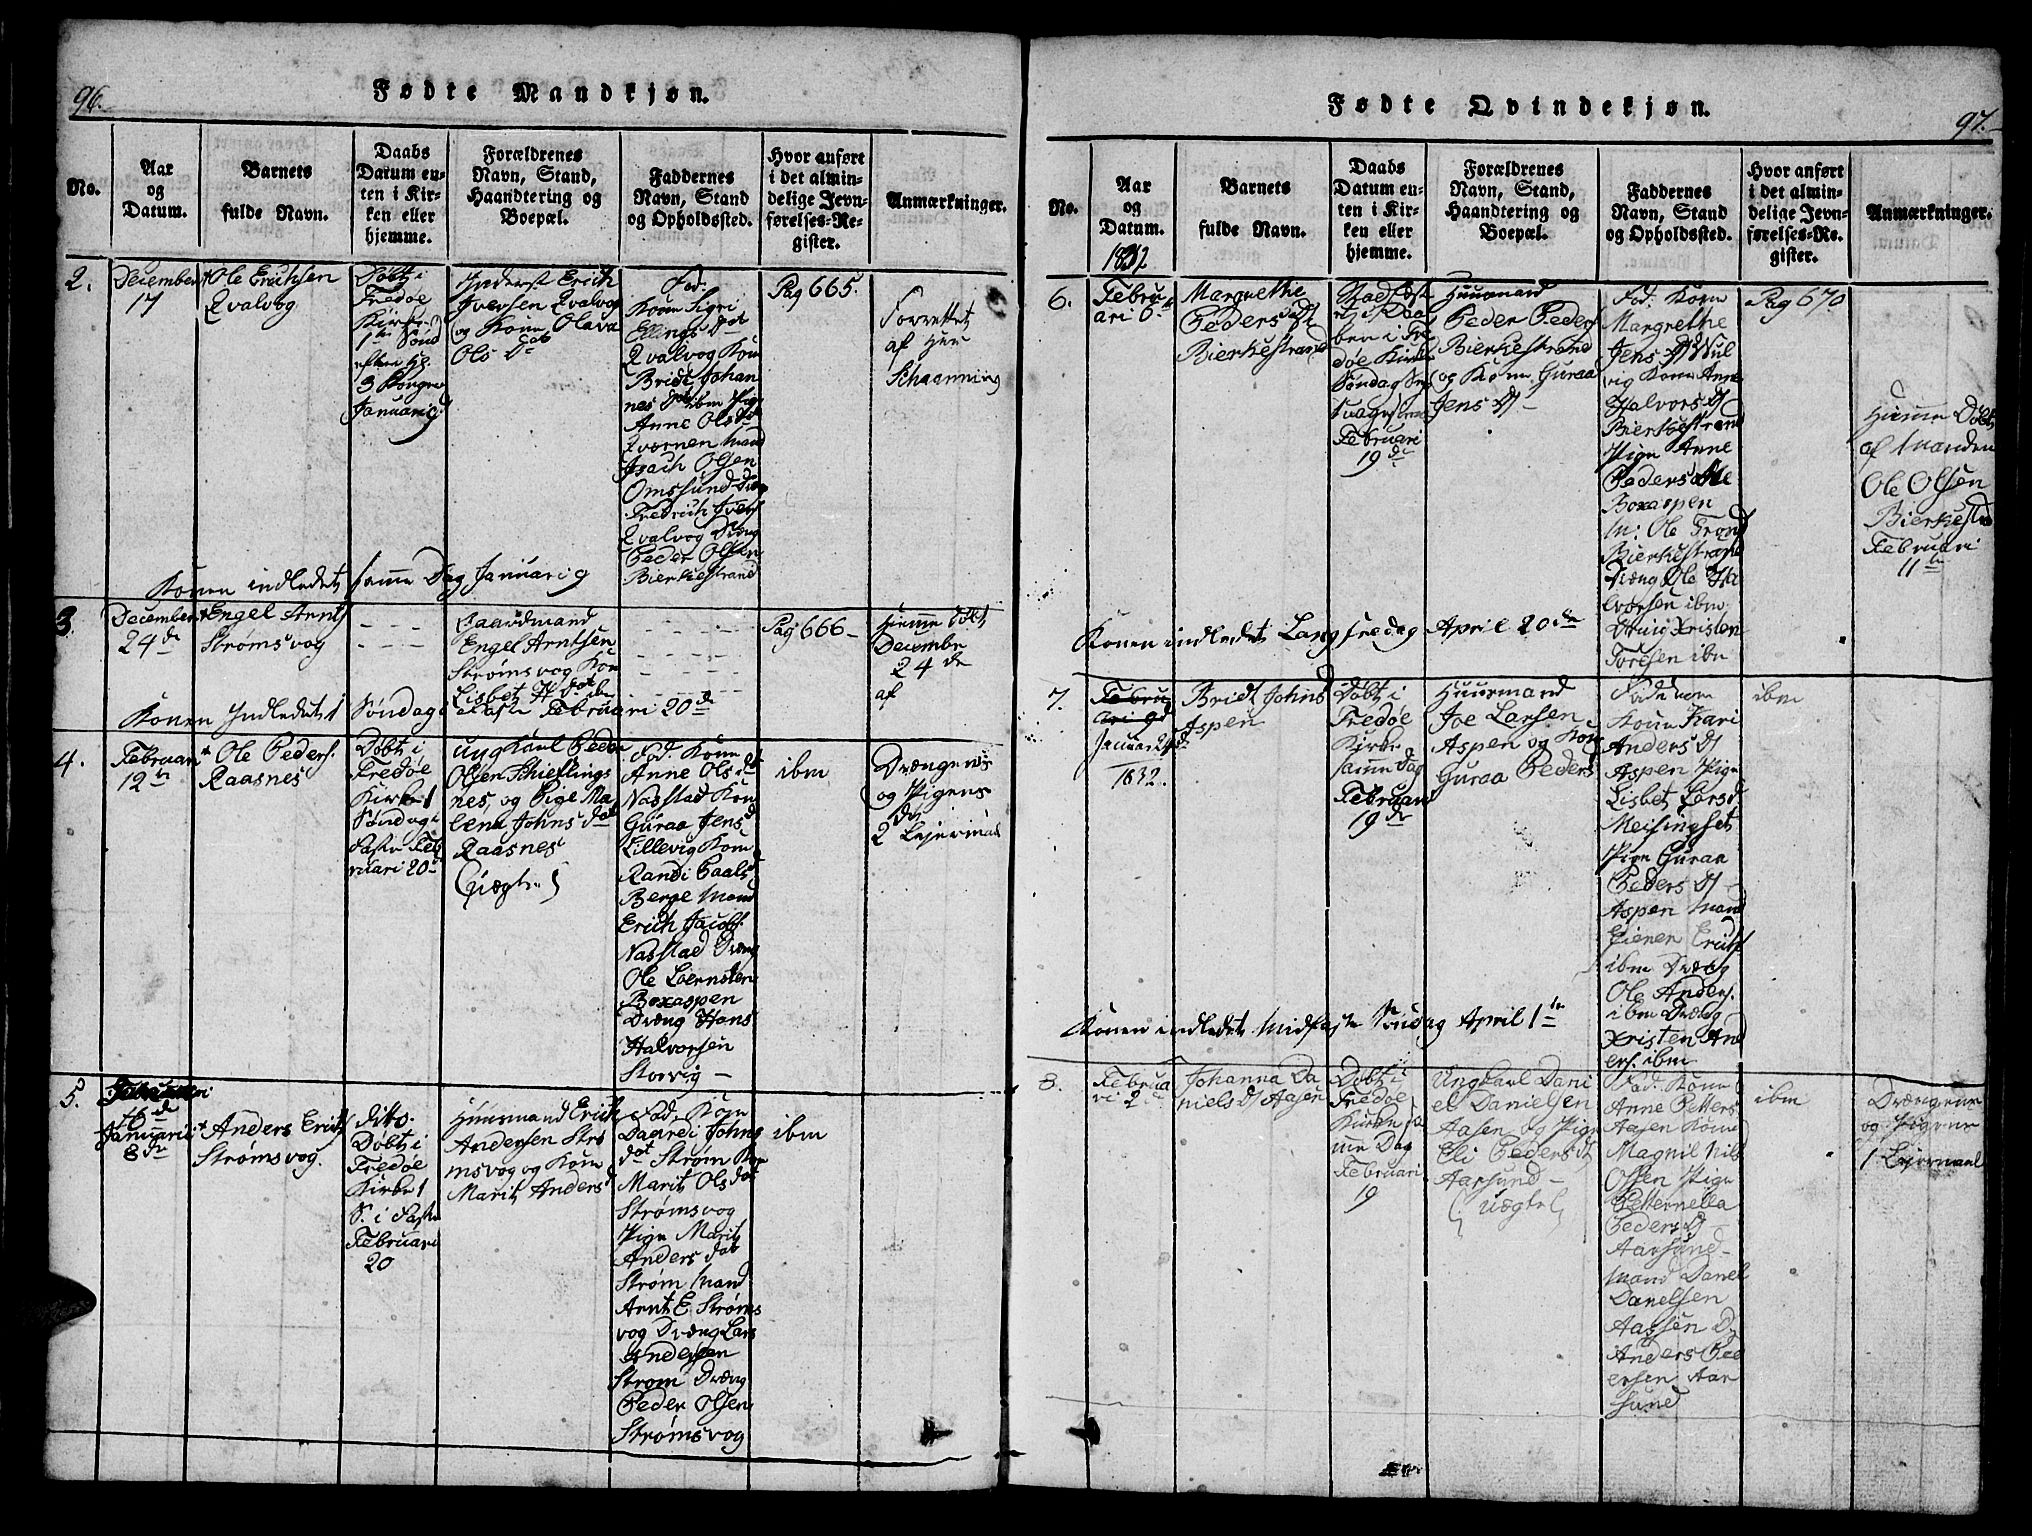 96.
Fødte Mandkjøn.
No.
Aar
og
Datum.
Barnets
fulde Navn.
Daabs
Datum en-
ten i Kir-
ken eller
hjemme.
Forældrenes
Navn, Stand,
Haandtering og
Boepæl.
Faddernes
Navn, Stand
og Opholdssted.
Hvor anført
i det almin-
delige Jevn-
førelses-Re-
gister.
Anmærkninger.
2.
December
17
Ole Erichsen
Qvalvog
Døbt i
Fredøe
Kirke
1te Sønd
efter H.
3 Konger
Januari 9
Inderst Erich
Iversen Qvalvog
og Kone Olava
Ols Dat
Fad.
Kone Sigri
Ellings Dat
Qvalvog Kone
Bridt Johan
nes Dat ibm Pig
Anne Ols Dat
Qvernen Mand
Isach Olsen
Omsund Dræng
Fredrich Ivers
Qvalvog Dræng
Peder Olsen
Bierkestrand
Pag 665.
Forrettet
af Her
Schaanning
Konen indledet samme Dag Januari 9
3.
December
24 de
Engel Arnts
Strømsvog
Gaardmand
Engel Arntsen
Strømsvog Kone
Lisbet H dat
Pag 666
Hiemme Døbt
Decembr
24 de
af
Konen Indledet 1 Søndag i Faste Februari 20 de
4.
Februari
12 te
Ole Peders.
Raasnes
Døbt i
Fredøe
Kirke 1
Søndag i
Faste Feb
ruari 20
ung Karl Peder
Olsen Schieflings
nes, og Pige Ma
lena Johns dat
Raasnes
(Uægte)
Fad. Kone
Anne Ols dat
Nasstad Kone
Guraa Jens d
Lillevig Kone
Randi Paals
Berge Mand
Erich Jacobs.
Nasstad Dræng
Ole Biernsten
Boxaspen
Dræng Hans
Halvorsen
Storvig —
ibm
Drængenes
og Pigens
2 Lejermaal
5.
Januari
8 de
Anders Erichs
Strømsvog.
ditto
Døbt i
Fredøe
Kirke 1
S. i Faste
Februari
20
Huusmand Erich
Andersen Strø
msvog og Kone
Marit Anders d
Fad. Kone
Gaardi Johns
dat Strøm Kone
Marit Ols dat
Strømsvog
Pige Marit
Anders dat
Strøm Mand
Arnt E. Strøms
vog Dræng Lars
Andersen
Strøm Dræng
Peder Olsen
Strømsvog
ibm
97.
Fødte Qvindekjøn.
No.
Aar
og
Datum.
1832
Barnets
fulde Navn.
Daabs
Datum en-
ten i Kir-
ken eller
hjemme.
Forældrenes
Navn, Stand,
Haandtering og
Boepæl.
Faddernes
Navn, Stand
og Opholdssted.
Hvor anført
i det almin-
delige Jevn-
førelses-Re-
gister.
Anmærkninger.
6.
Febru
ari 6te
Margrethe
Peders D
Bierkestrand
Stadfæst
et Daa
ben i Fre
døe Kirke
Søndag
Februari
19 de
Huusmand
Peder Peders
Bierkestrand
og Kone Guraa
Jens D —
Fad: Kone
Margrethe
Jens D Vul
vig Kone Anne
Halvors D
Bierkestrand
Pige Anne
Peders
Boxaspen
M: Ole Trond
Bierkestrand
Dræng Ole Ha
lvorsen ibm
Dræng Xristen
Toresen ibm
Pag 670
Hiemme Døbt
af Manden
Ole Olsen
Bierkestd
Februari
11 te
Konen indledet Langfredag April 20 de
7.
Febru
ari 9d
Januar 29 de
1832.
Bridt Johns
Aspen
Døbt i
Fredøe
Kirke
samme Dag
Februari
19 de
Huusmand
Joe Larsen
Aspen og Kone
Guraa Peders
Faderne
Kone Kari
Anders D
Aspen Pige
Lisbet Lars d.
Meisingset
Pige Guraa
Peders D
Aspen Mand
Eiener Erichs
ibm Dræng
Ole Anders.
ibm Dræng
Xristen And
ers. ibm
ibm
Konen indledet Midfaste Søndag April 1te
8.
Februa
ri 2
Johanna Da
niels D Aasen
Døbt i
Fredøe
Kirke sa
mme Dag
Februari
19
Ungkarl Dani
el Danielsen
Aasen og Pige
Eli Peders D
Aarsund —
(Uægte)
Fad. Kone
Anne Petters
Aasen Kone
Magnil Nils
Ossen Pige
Petternella
Peders D
Aarsund —
Mand Danel
Danelsen
Aassen D
Anders Ped
ersen Aar
sund
ibm
Drængene
og Pigene
1 Lejermaal